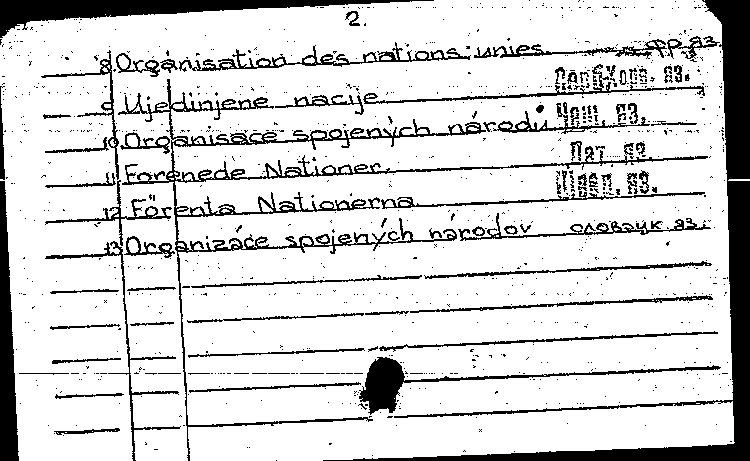 2.
8 Organisation des nations unies. фр. яз.
9 Ujedinjene nacije Сербхорв. яз.
10 Organisace spojených národů Чеш. яз.
11 Forenede Nationer. Дат. яз.
12 Förenta Nationerna Швед. яз.
13 Organizáce spojených národov словацк. яз.